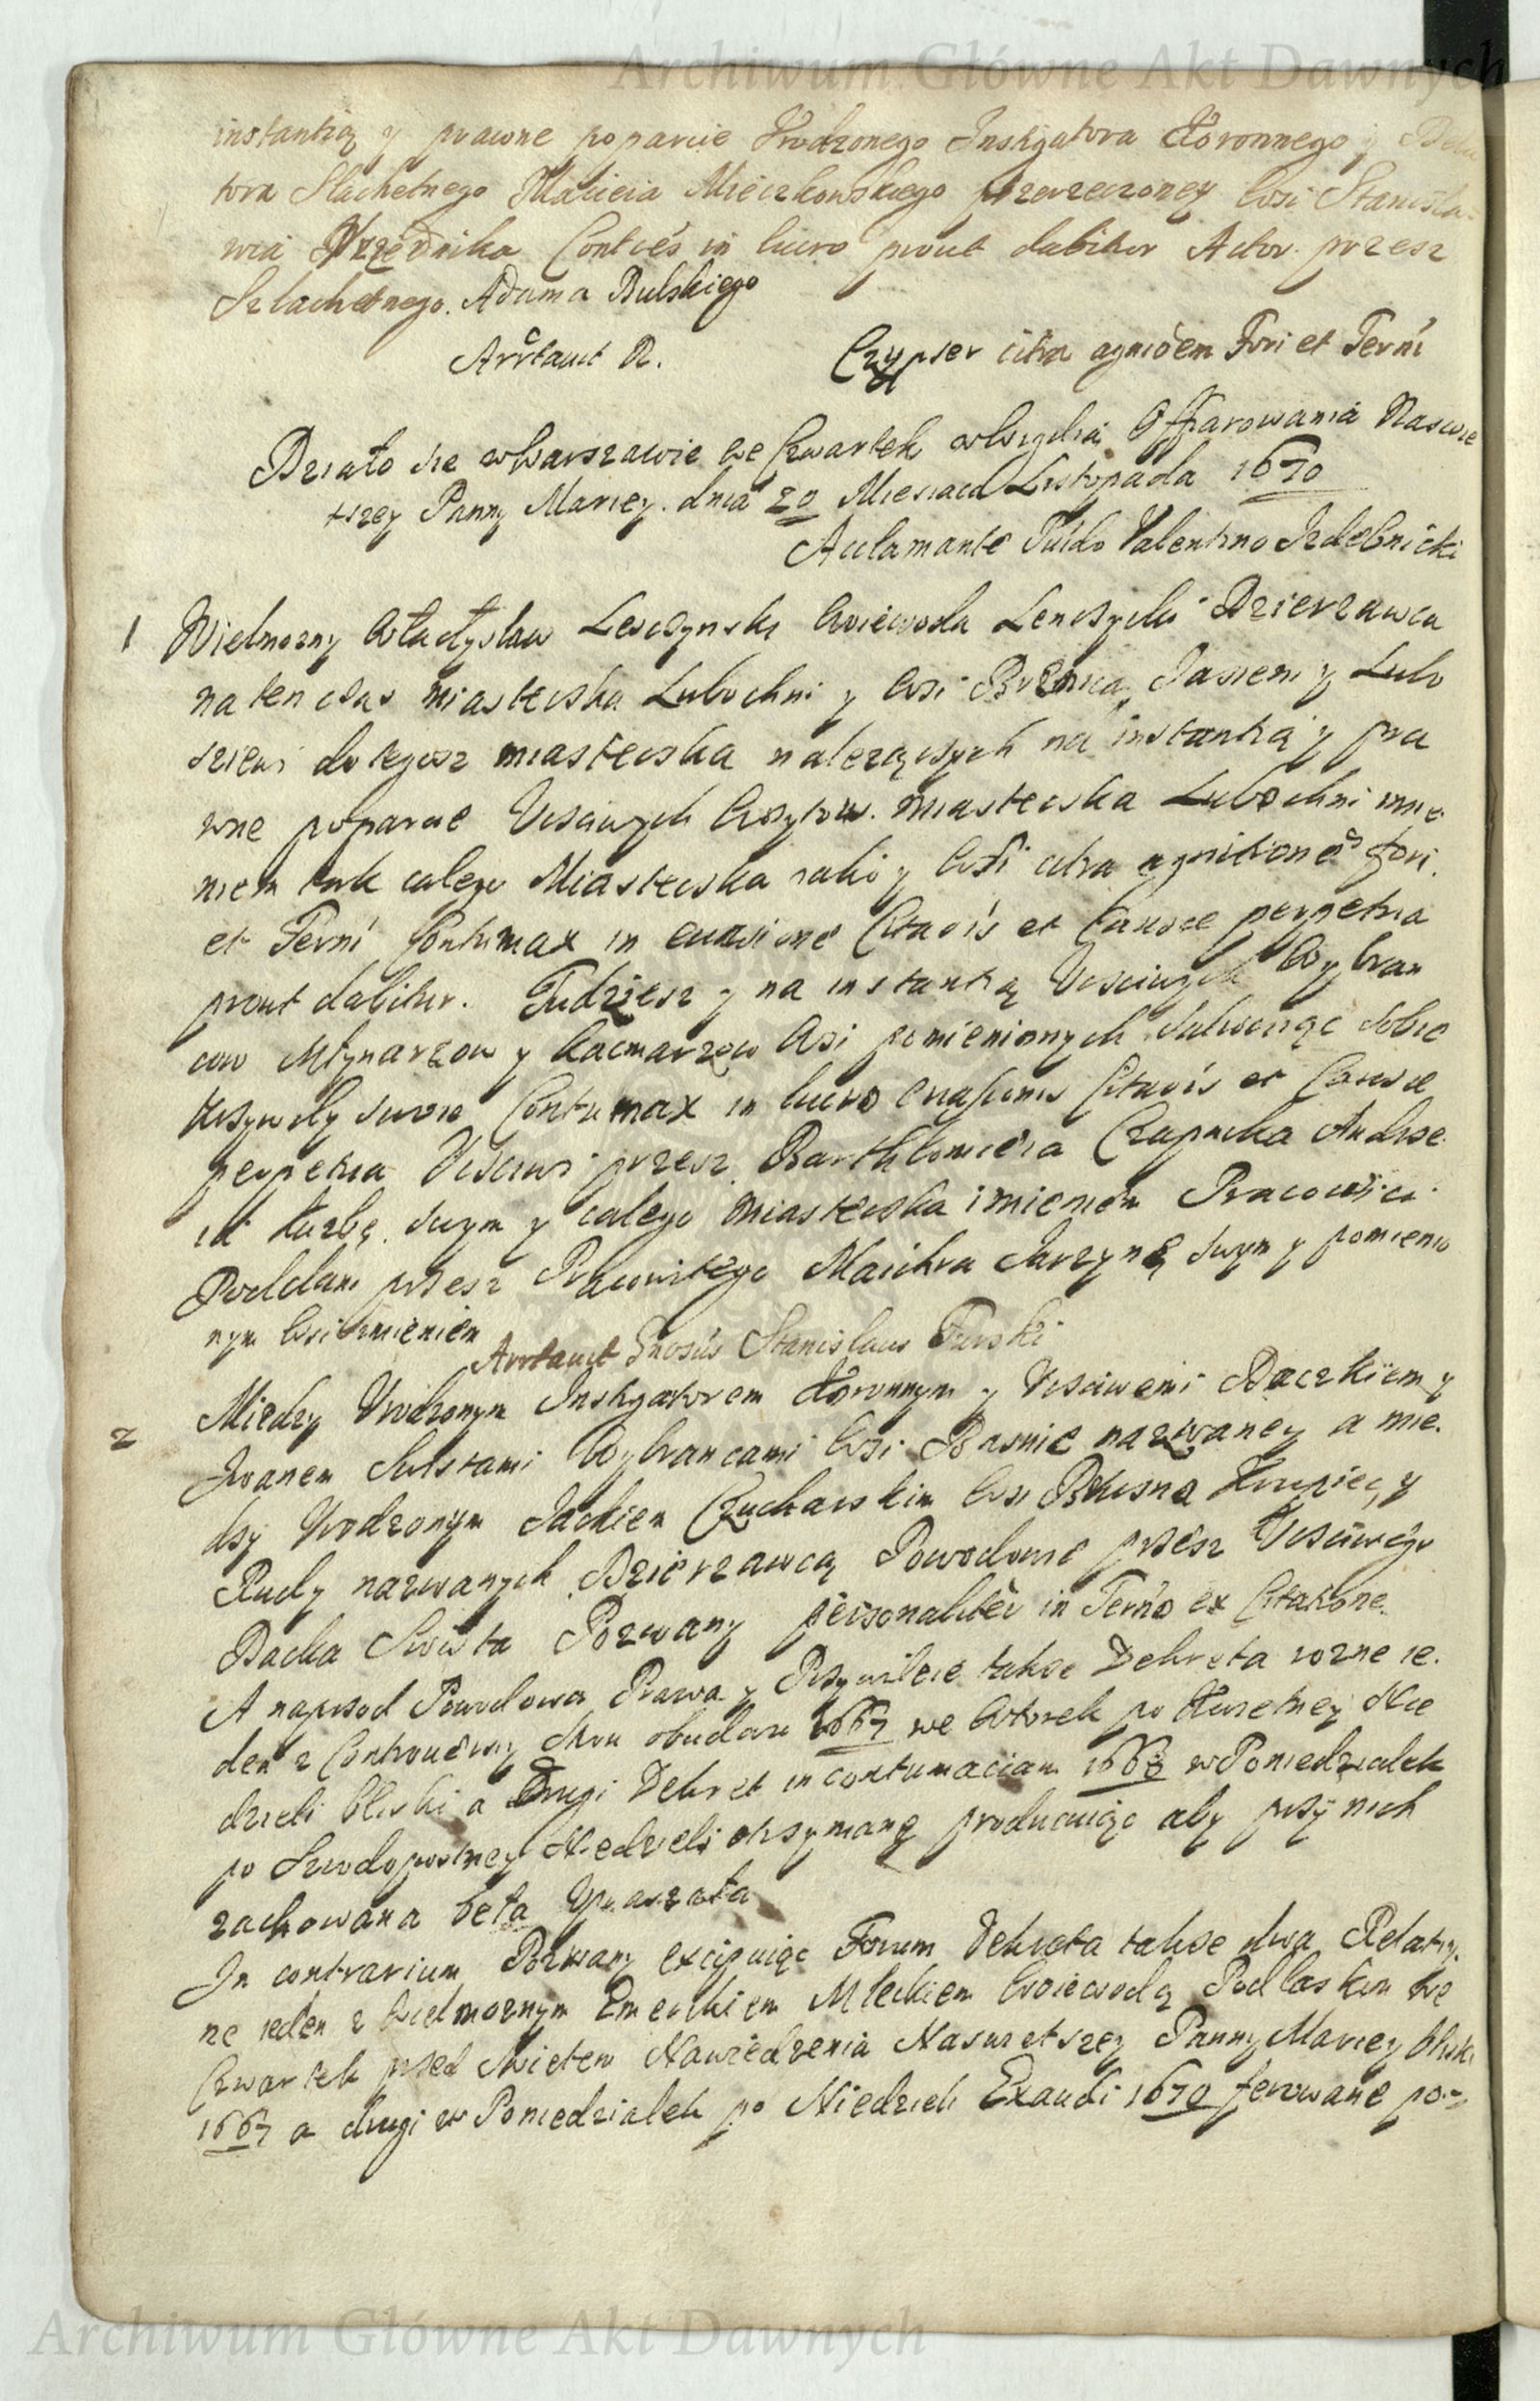 Archiwum Główne Akt Dawnych
instantią y prawne poparcie Urodzonego Instigatora Koronnego y Dela
tora Slachetnego Macieia Mieczkowskiego przerzeczoney Wsi Stanisła-
wia Urzędnika Contúés in lucro prout dabitur Actor. przesz
Szlachetnego. Adama Bulskiego
Arrtauit R.
Czypser citra agnióem Fori et Terńi
Działo sie w Warszawie we Czwartek w Wigilią Offiarowania Naswie
tszey Panny Mariey. dnia 20 Miesiaca Listopada 1670
Acclamante Valentino Izdebnicki
1 Wielmozny Władysław Lesczynski Woiewoda Lenczycki Dzierzawca
na ten czas miasteczka Lubochni y Wsi Jasieni y Lubo
dotegosz miasteczka nalezączych na instantią y pra
wne poparcie Ucsciwych Woytow. miasteczka Lubochni imie
niem tak calego Miasteczka iako y Wsi citra agnitioné fori.
et Terńi Contumax in euasioné Citaóis et Causae perpetua
prout dabitur. Tudziesz y na instantią Ucsciwych Wybran
cow Młynarzow y Kacmarzow Wsi pomienionych salwuiąc sobie
Przywiley swoie Contumax in lucro euasionis Citaóis et Causae
perpetua Ucsciwi przesz Barthłomieia Czapnika Andrze
ia swym y calego miasteczka imieniem Pracowici
Poddani przesz Pracowitego Maichra Jarzynę swym y pomienio
nym Wsi imieniem
Arrtauit Gnosús Stanislaus Turski
2 Miedzy Urodzonym Instigatorem Koronnym y Ucsciwemi Daczkiem y
Iwanem Wybrancami Wsi nazwaney a mie.
dzy Urodzonym Jackiem Czucharskim Wsi Krupiec y
Rudy nazwanych Dzierzawcą Powodowie przesz Ucsciwego
Dacka Pozwany personalitèr in Terńo ex Citatione.
A naprzod Powodowa Prawa y Przywileie takze Dekreta rozne ie.
den z 1667 we Wtorek po Kwietney Nie
dzieli bliski a Drugi Dekret in contumaciam 1668 w Poniedzialek
po Srzodopostney Niedzieli otrzymany producuiąc aby przy nich
zachowana beła Upraszała
In contrarium Pozwany excipuiąc Forum Dekreta takze dwa Relatiy.
ne ieden z Wielmoznym Emerikiem Mleckiem Woiewodą Podlaskim we
Czwartek przed Swietem Nawiedzenia Naswietszey Panny Mariey bliski
1667 a drugi w Poniedzialek po Niedzieli Exaudi 1670 ferowane po-
Archiwum Główne Akt Dawnych